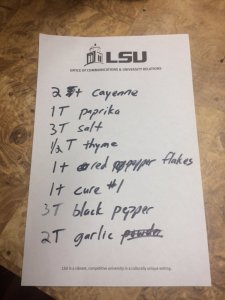 LSU
OFFICE OF COMMUNICATIONS & UNIVERSITY RELATIONS
2 t cayenne
1 T paprika
3 T salt
1/2 T thyme
1 t red pepper flakes
1 t cure #1
3 T black pepper
2 T garlic powder
LSU is a vibrant, competitive university in a culturally unique setting.